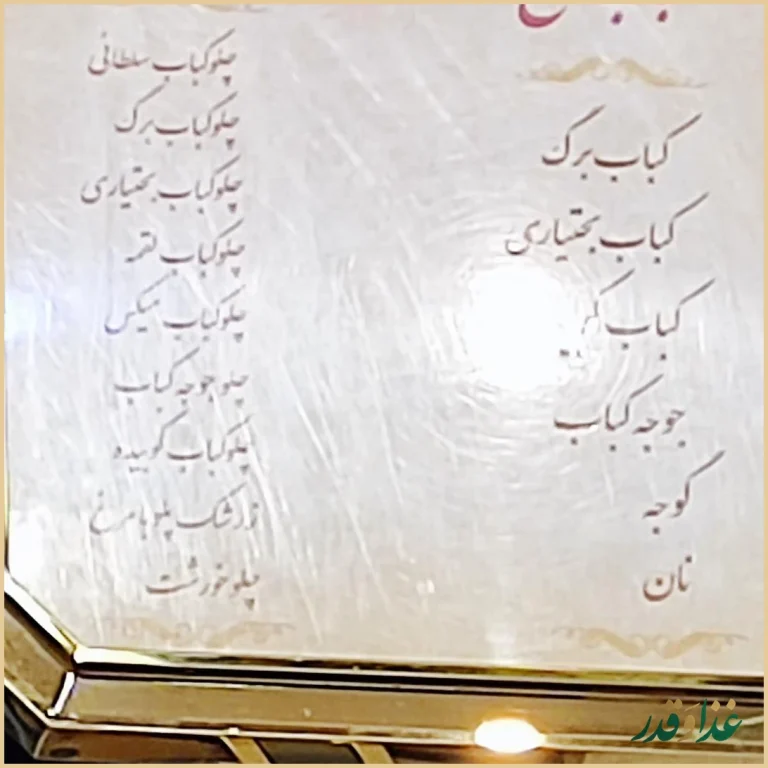 کباب برگ
کباب بختیاری
کباب
جوجه کباب
گوجه
نان
چلوکباب سلطانی
چلوکباب برگ
چلوکباب بختیاری
چلوکباب لقمه
چلوکباب میکس
چلو جوجه کباب
چلوکباب کوبیده
زرشک پلو با مرغ
چلو خورشت
غذا و قدر